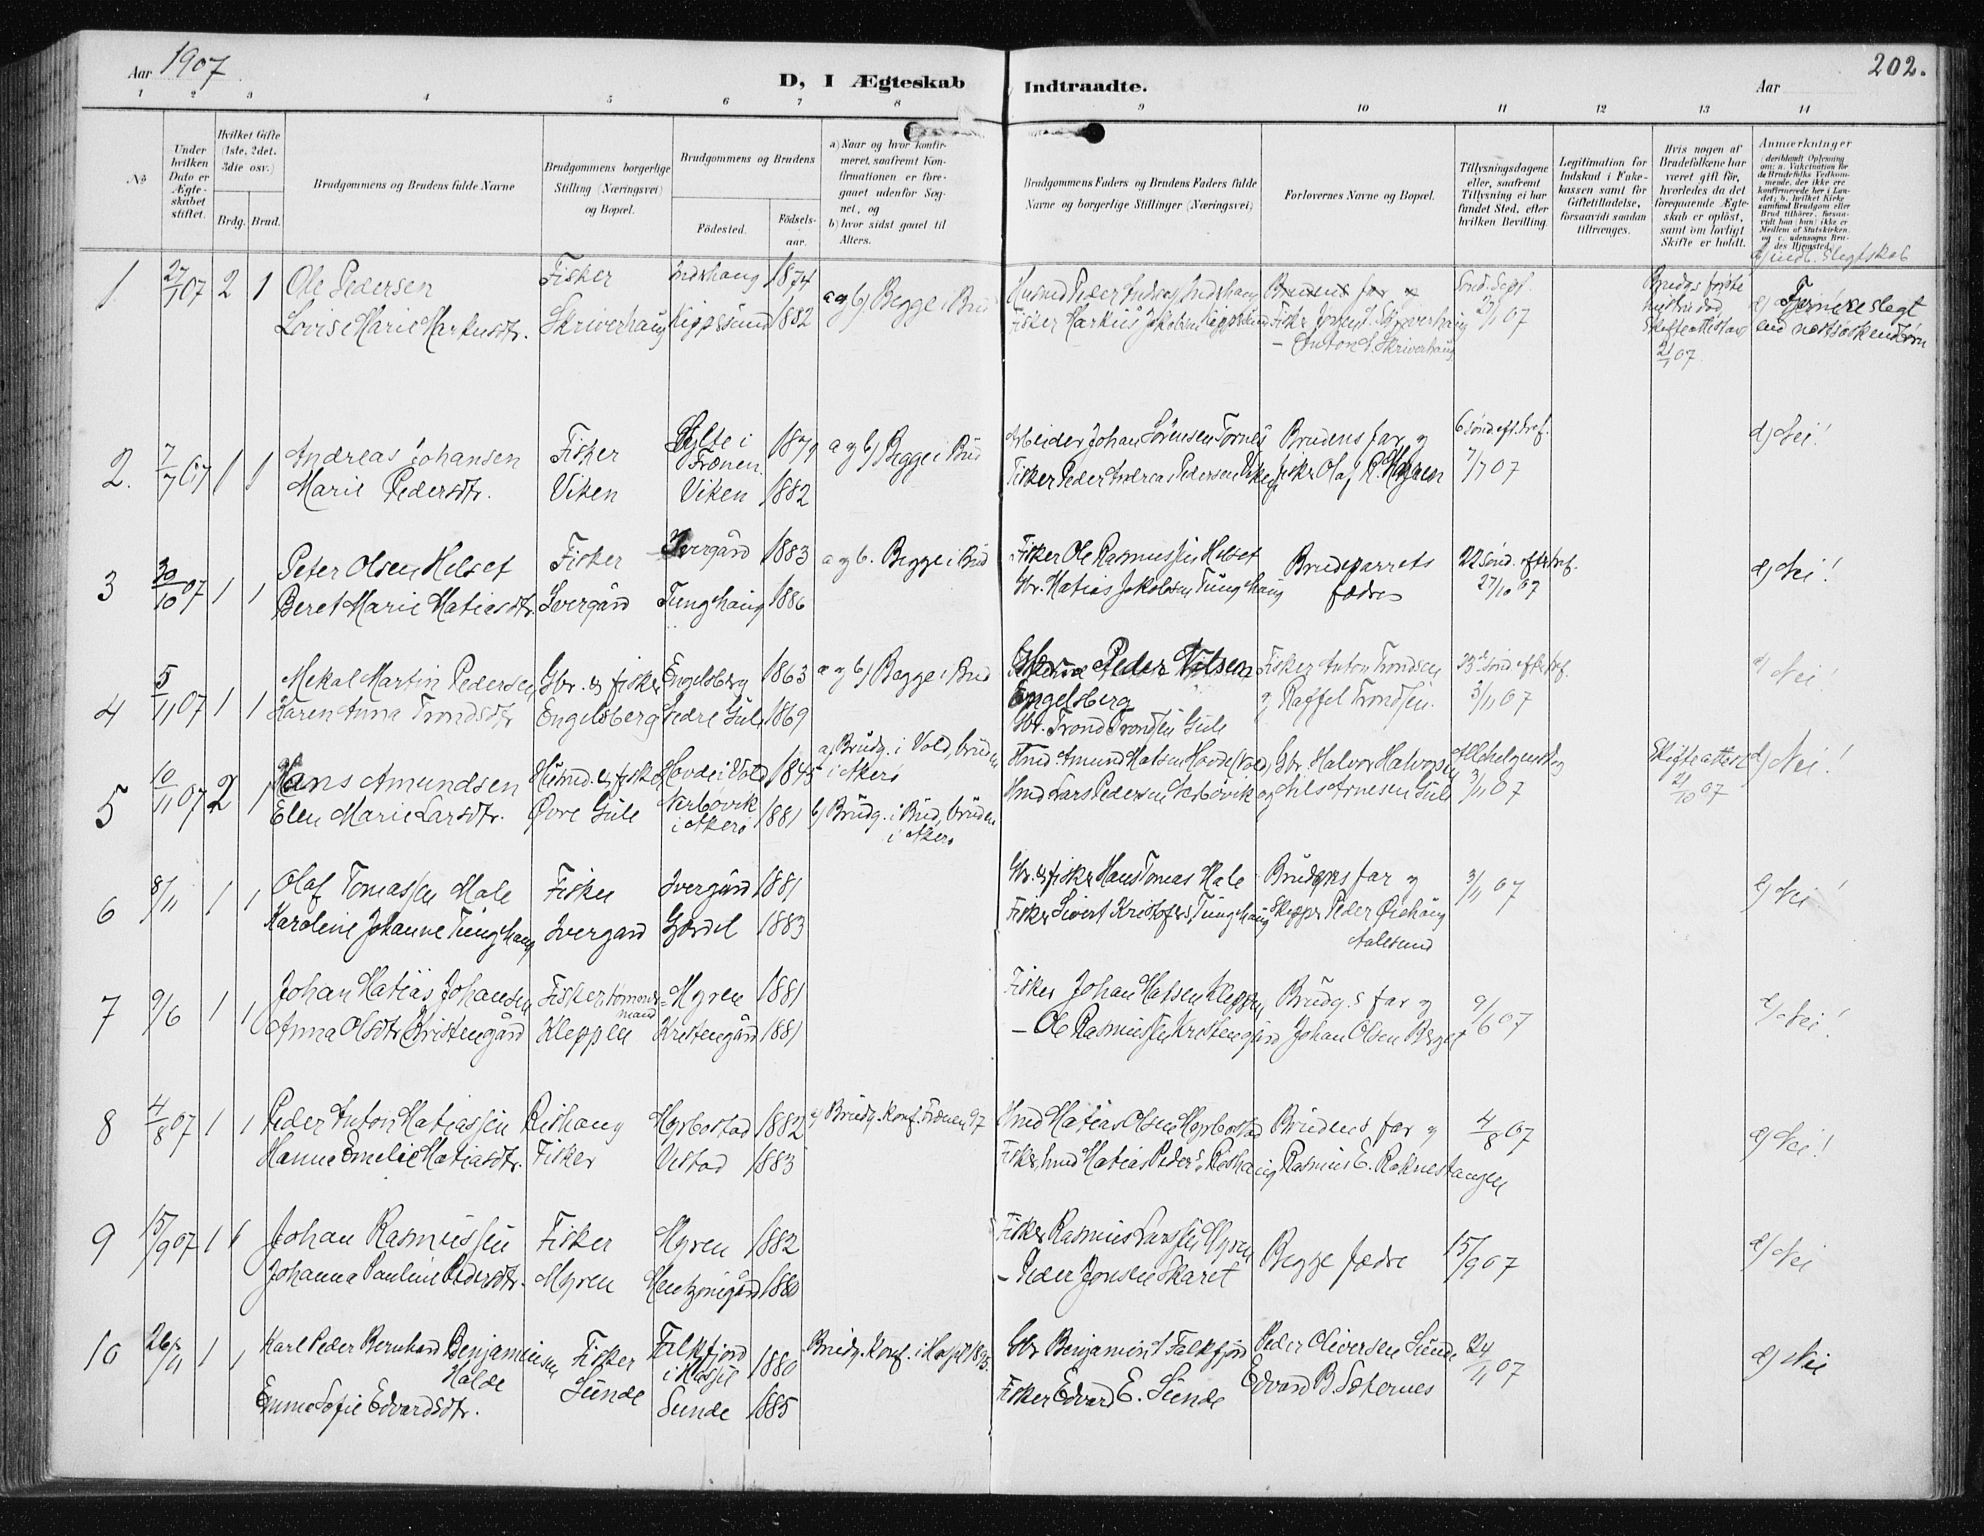 Aar 1907
D, I Ægteskab Indtraadte.
Aar
202.
1 2 3 4 5 6 7 8 9 10 11 12 13 14
No
Under hvilken Dato er Ægteskabet stiftet.
Hvilket Gifte (1ste, 2det, 3die osv.)
Brdg. Brud.
Brudgommens og Brudens fulde Navne
Brudgommens borgerlige Stilling (Næringsvei) og Bopæl.
Brudgommens og Brudens
Födested. Födsels-aar.
a) Naar og hvor konfirmeret, saafremt Konfirmationen er foregaaet udenfor Sognet, og
b) hvor sidst gaaet til Alters.
Brudgommens Faders og Brudens Faders fulde Navne og borgerlige Stillinger (Næringsvei)
Forlovernes Navne og Bopæl.
Tillysningsdagene eller, saafremt Tillysning ei har fundet Sted, efter hvilken Bevilling.
Legitimation for Indskud i Enkekassen samt for Giftetilladelse, forsaavidt saadan tiltrænges.
Hvis nogen af Brudefolkene har været gift för, hvorledes da det foregaaende Ægteskab er oplöst, samt om lovligt Skifte er holdt.
Anmærkninger
d) indb. Slegtskab
1 27/1 07 2 1 Ole Pedersen Fisker Indrhaug 1874 a og b) Begge i Bud
Lovise Marie Markusdtr. Skriverhaug 1882
Fisker Markus Jakobsen
Skriverhaug
13/1 07
Brudgs første hustru død Skifteattest av 21/1 07.
d) Fjernere slegt end næstsøskendbørn
2. 7/7 07 1 1 Andreas Johansen Fisker Sylte i Frænen 1879 a og b) Begge i Bud Arbeider Johan Sørensen Tornes Brudens far og 6 sønd eft. tref. d) Nei!
Marie Pedersdtr. Viken Viken 1882 Fisker Peder Andreas Pedersen Viken fisker Olaf P. Magnen 7/7 07
3 30/10 07 1 1 Peter Olsen Helset Fisker Ivergård 1883 a og b. Begge i Bud Fisker Ole Rasmussen Helset Brudeparrets 22 sønd. efter tref. d) Nei!
Beret Marie Matiasdtr. Ivergård Tunghaug 1886 Gbr. Matias Jakobsen Tunghaug fædre 27/10 07
4 5/11 07 1 1 Mekal Martin Pedersen Gbr. & fisker Engelsberg 1863 a og b) Begge i Bud Peder Nilsen Fisker Anton Trondsen 23 sønd efter tref. d) Nei!
Karen Anna Trondsdtr Engelsberg Nedre Gule 1869 Engelsberg og Raffel Trondsen. 3/11 07
Gbr. Trond Trondsen Gule
5 10/11 07 2 1 Hans Amundsen Husmd. & fisker Hovde i Vold 1845 a) Brudg. i Vold, bruden i Akerø Hmd Amund Hansen Hovde (Vold) Gbr Halvor Halvorsen Allehelgensdag Skifteattest d) Nei!
Elen Marie Larsdtr. Øvre Gule Nerbøvik i Akerø 1881 b) Brudg. i Bud, bruden i Akerø Hmd Lars Pedersen Nerbøvik og Nils Arnesen Gule 3/11 07 21/10 07
6 8/11 1 1 Olaf Tomassen Male Fisker Ivergård 1881 Gbr. & fisker Hans Tomas Male Brudgms far og 3/11 07 d) Nei!
Karoline Johanne Tunghaug Ivergard Gjardet 1883 Fisker Sivert Kristofers. Tunghaug Skipper Peder Ørshaug Aalesund
7 9/6 1 1 Johan Matias Johansen Fisker tømmermand Myren 1881 Fisker Johan Hansen Kleppen Brudg.s far og 9/6 07 d) Nei!
Anna Olsdtr Kristengård Kleppen Kristengård 1881 - Ole Rasmussen Kristengård Johan Olsen Berget
8 4/8 07 1 1 Peder Anton Matiassen Rishaug Myrbostad 1882 a) Brudg. Konf. Frænen 97 Hmd Matias Olsen Myrbostad Brudens far og 4/8 07 d) Nei!
Hanna Emelie Matiasdtr. Fisker Vestad 1883 Fisker, hmd Matias Peders. Rishaug Rasmus E. Raknestangen
9 15/9 07 1 1 Johan Rasmussen Fisker Myren 1882 Fisker Rasmus Larssen Myren Begge fædre 15/9 07 d) Nei
Johanna Pauline Pedersdtr. Myren 1880 - Peder Jonsen Skaret
10 26/11 1 1 Karl Peder Bernhard Benjaminsen Halde Fisker Falkfjord i Hasjel 1880 Brudg. Konf. i Hasjel 1895. Gbr Benjamin J Falkfjord Peder Oliversen Sunde 24/11 07 d) Nei
Emma Sofie Edvardsdtr. Sunde Sunde 1885 Fisker Edvard E. Sunde Edvard B Sæternes